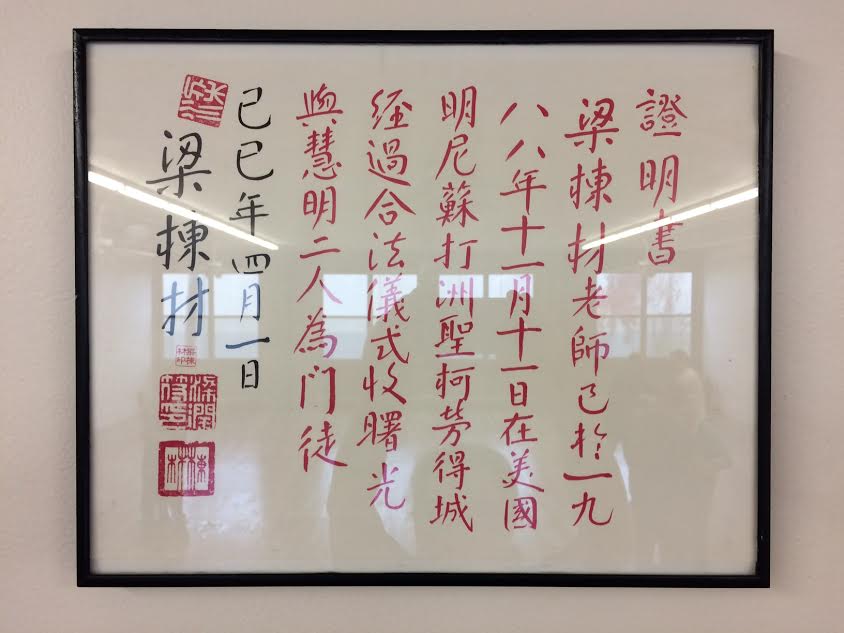 證明書
梁棟材老師已於一九
八八年十一月十一日在美國
明尼蘇打洲聖柯勞得城
經過合法儀式收曙光
與慧明二人為門徒
己巳年四月一日
梁棟材